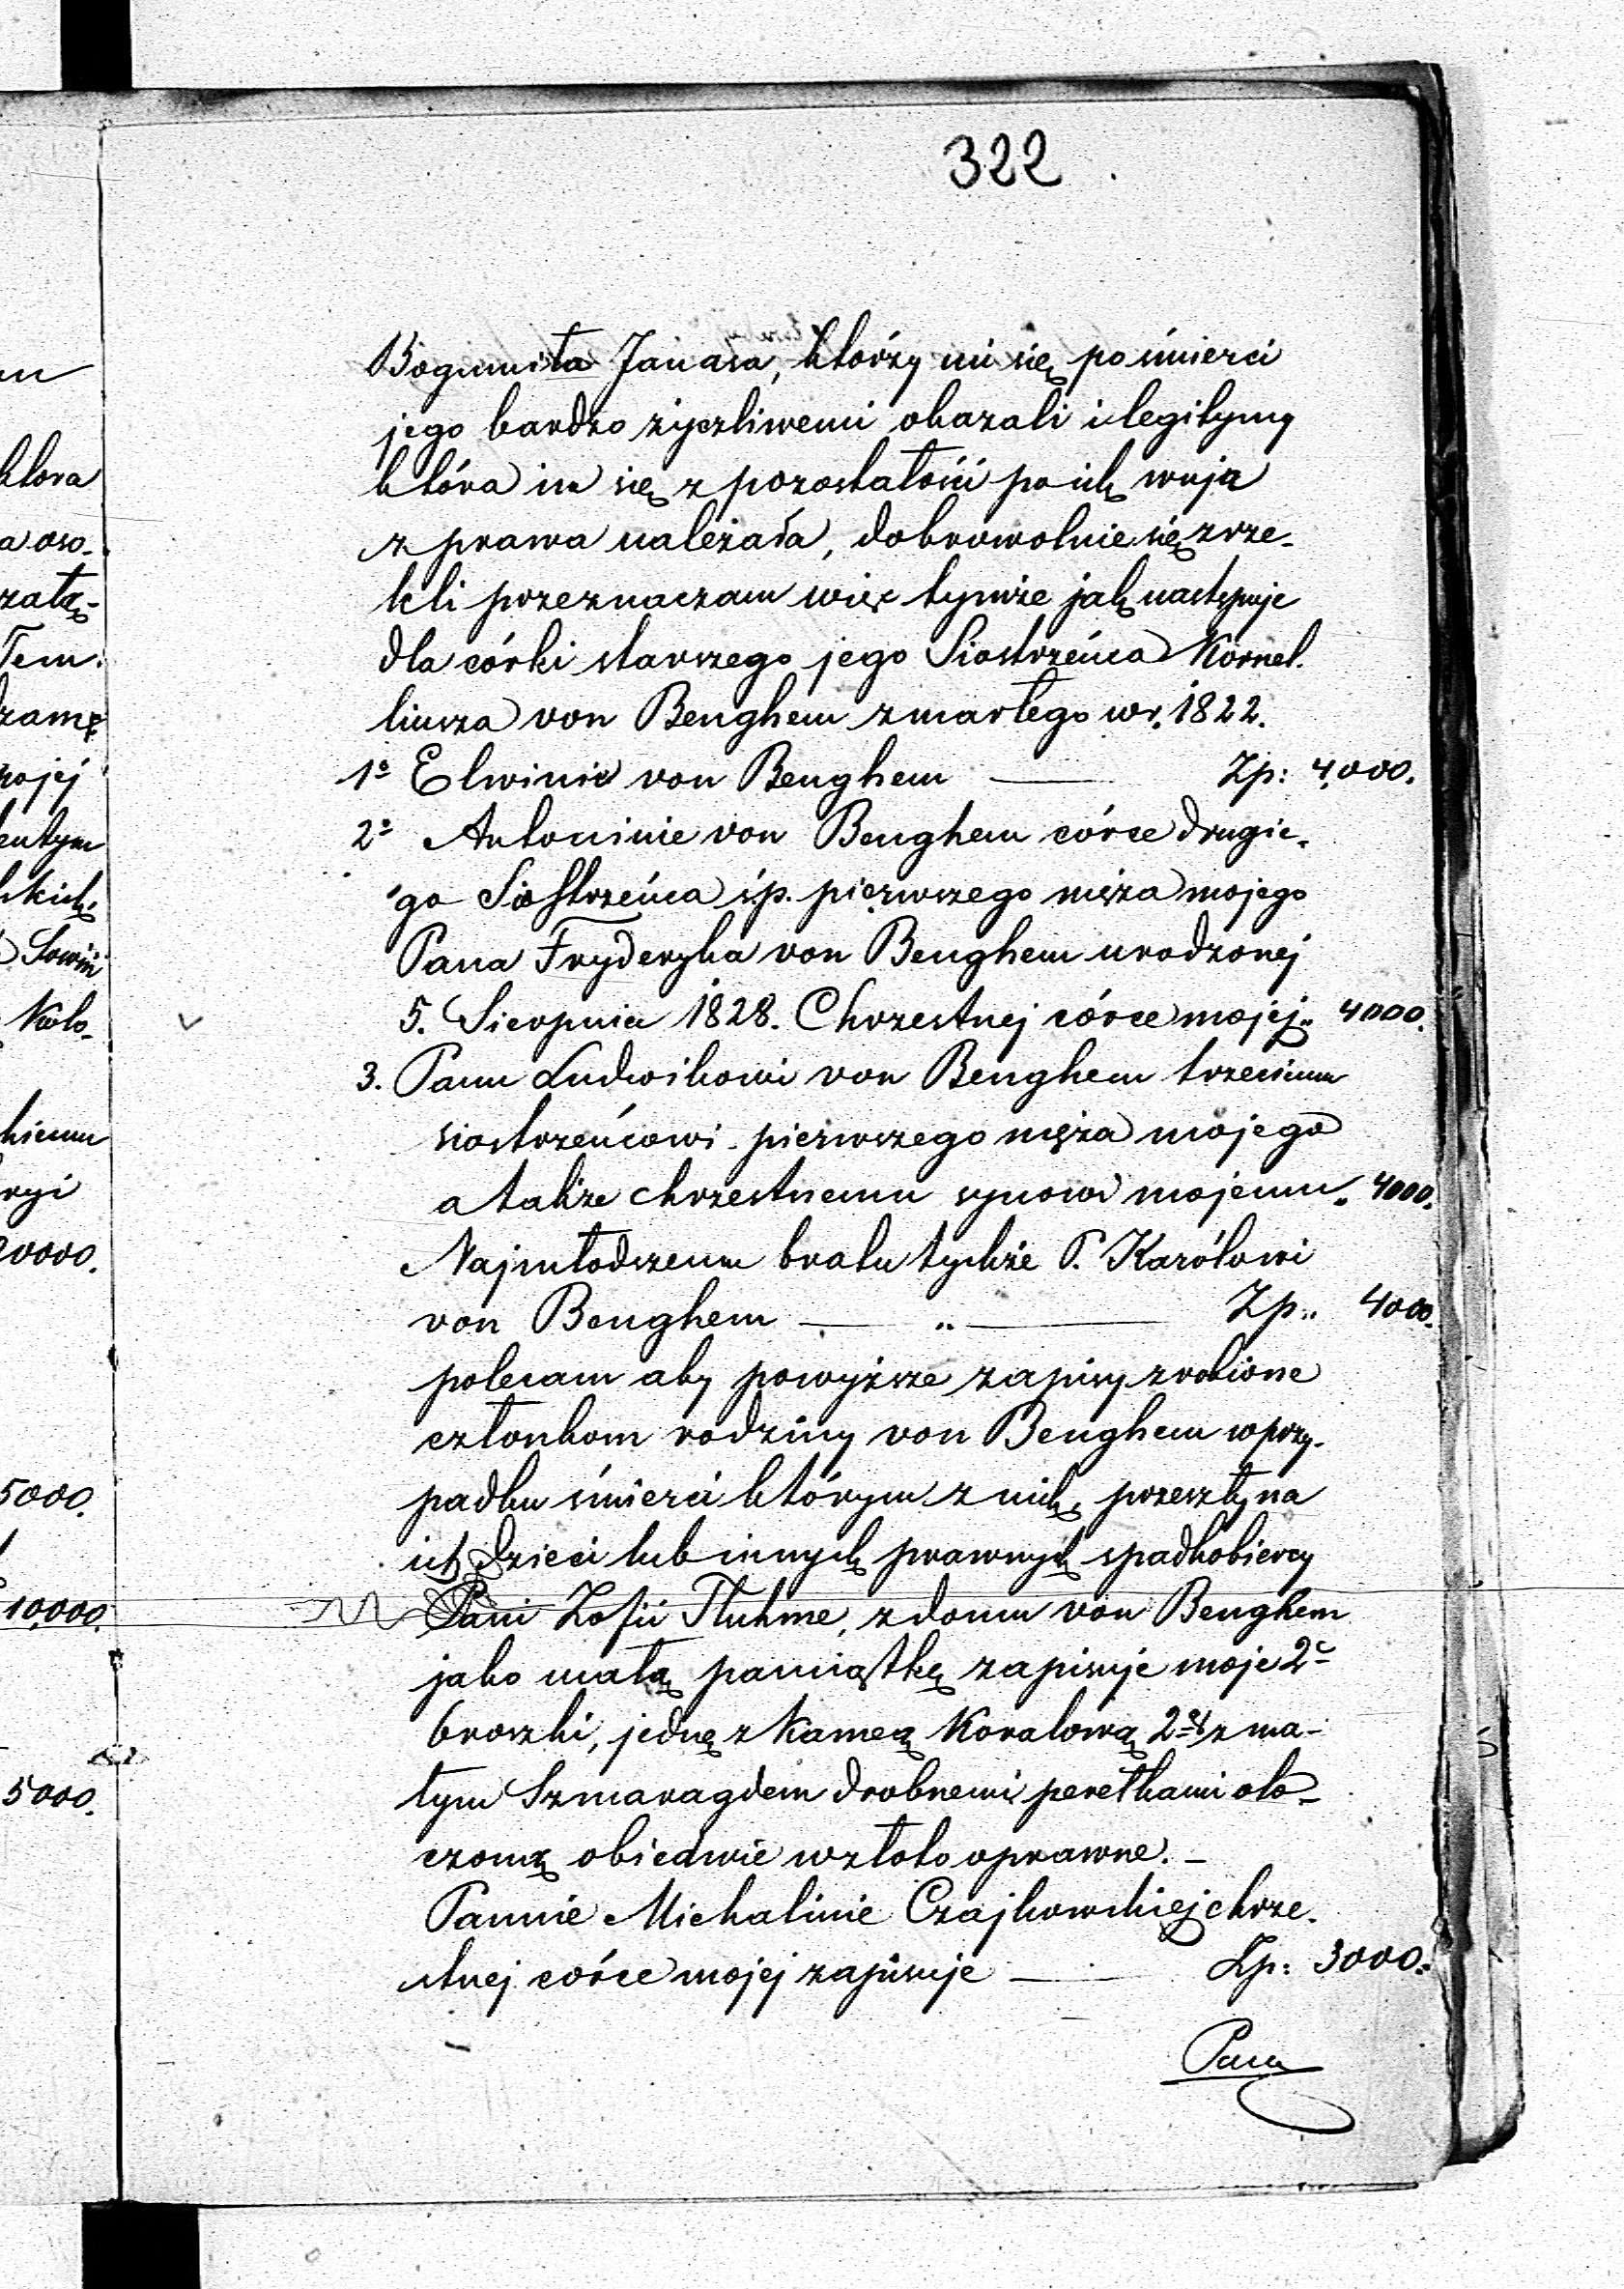 322
Bogumiła Janasa, którzy mi się po śmierci
jego bardzo życzliwemi okazali i legitymy
która im się z pozostałości po ich wuja
z prawa należała, dobrowolnie się zrze-
kli przeznaczam więc tymże jak następuje
dla córki starszego jego Siostrzeńca Kornel.
liusza von Benghem zmarłego w r. 1822.
1º Elwinie von Benghem — Zp: 4,000.
2º Antoninie von Benghem córce drugie-
go Siostrzeńca śp. pierwszego męża mojego
Pana Fryderyka von Benghem urodzonej
5. Sierpnia 1828. Chrzestnej córce mojej „ 4000.
3. Panu Ludwikowi von Benghem trzeciemu
siostrzeńcowi pierwszego męża mojego
a także chrzestnemu synowi mojemu „ 4000.
Najmłodszemu bratu tychże P. Karólowi
von Benghem — „ — Zp„ 4000.
polecam aby powyższe zapisy zrobione
członkom rodziny von Benghem w przy-
padku śmierci którym z nich, przeszły na
ich dzieci lub innych prawnych spadkobiercy
Pani Zofii Fluhme, z domu von Benghem
jako małą pamiątkę zapisuje moje 2e
broszki, jednę z Kameą Koralową 2gą z ma-
łym Szmaragdem drobnemi perełkami oto-
czoną obiedwie w złoto oprawne. –
Pannie Michalinie Czajkowskiej chrze-
stnej córce mojej zapisuje — Zp: 3000.
Pana
ktora
a oso-
zamę
mojej
entym
skich,
Kolo-
kiemu
ryi
20000.
5000.
10,000.
5000.